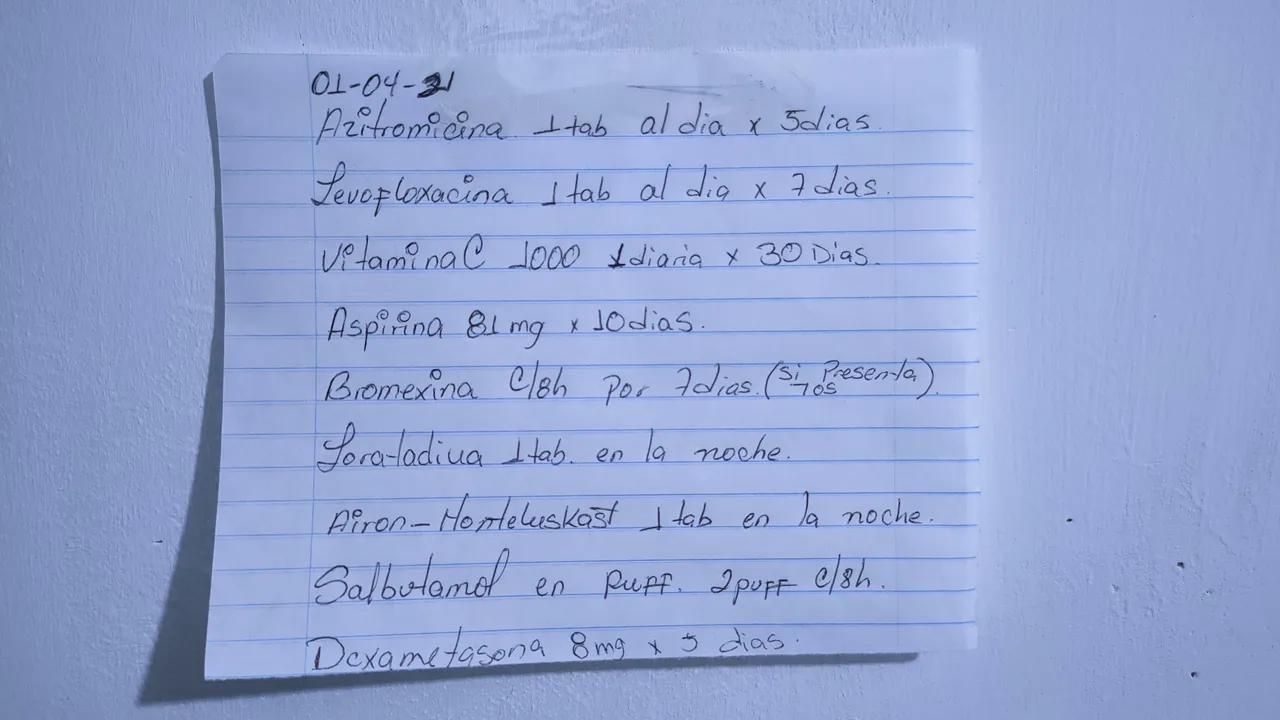 01-04-21
Azitromicina 1 tab al dia x 5 dias.
Levofloxacina 1 tab al dia x 7 dias.
Vitamina C 1000 1 diaria x 30 Dias.
Aspirina 81 mg x 10 dias.
Bromexina C/8h por 7 dias. (Si Presenta Tos).
Loratadina 1 tab. en la noche.
Airon-Monteluskast 1 tab en la noche.
Salbutamol en puff. 2 puff C/8h.
Dexametasona 8 mg x 5 dias.